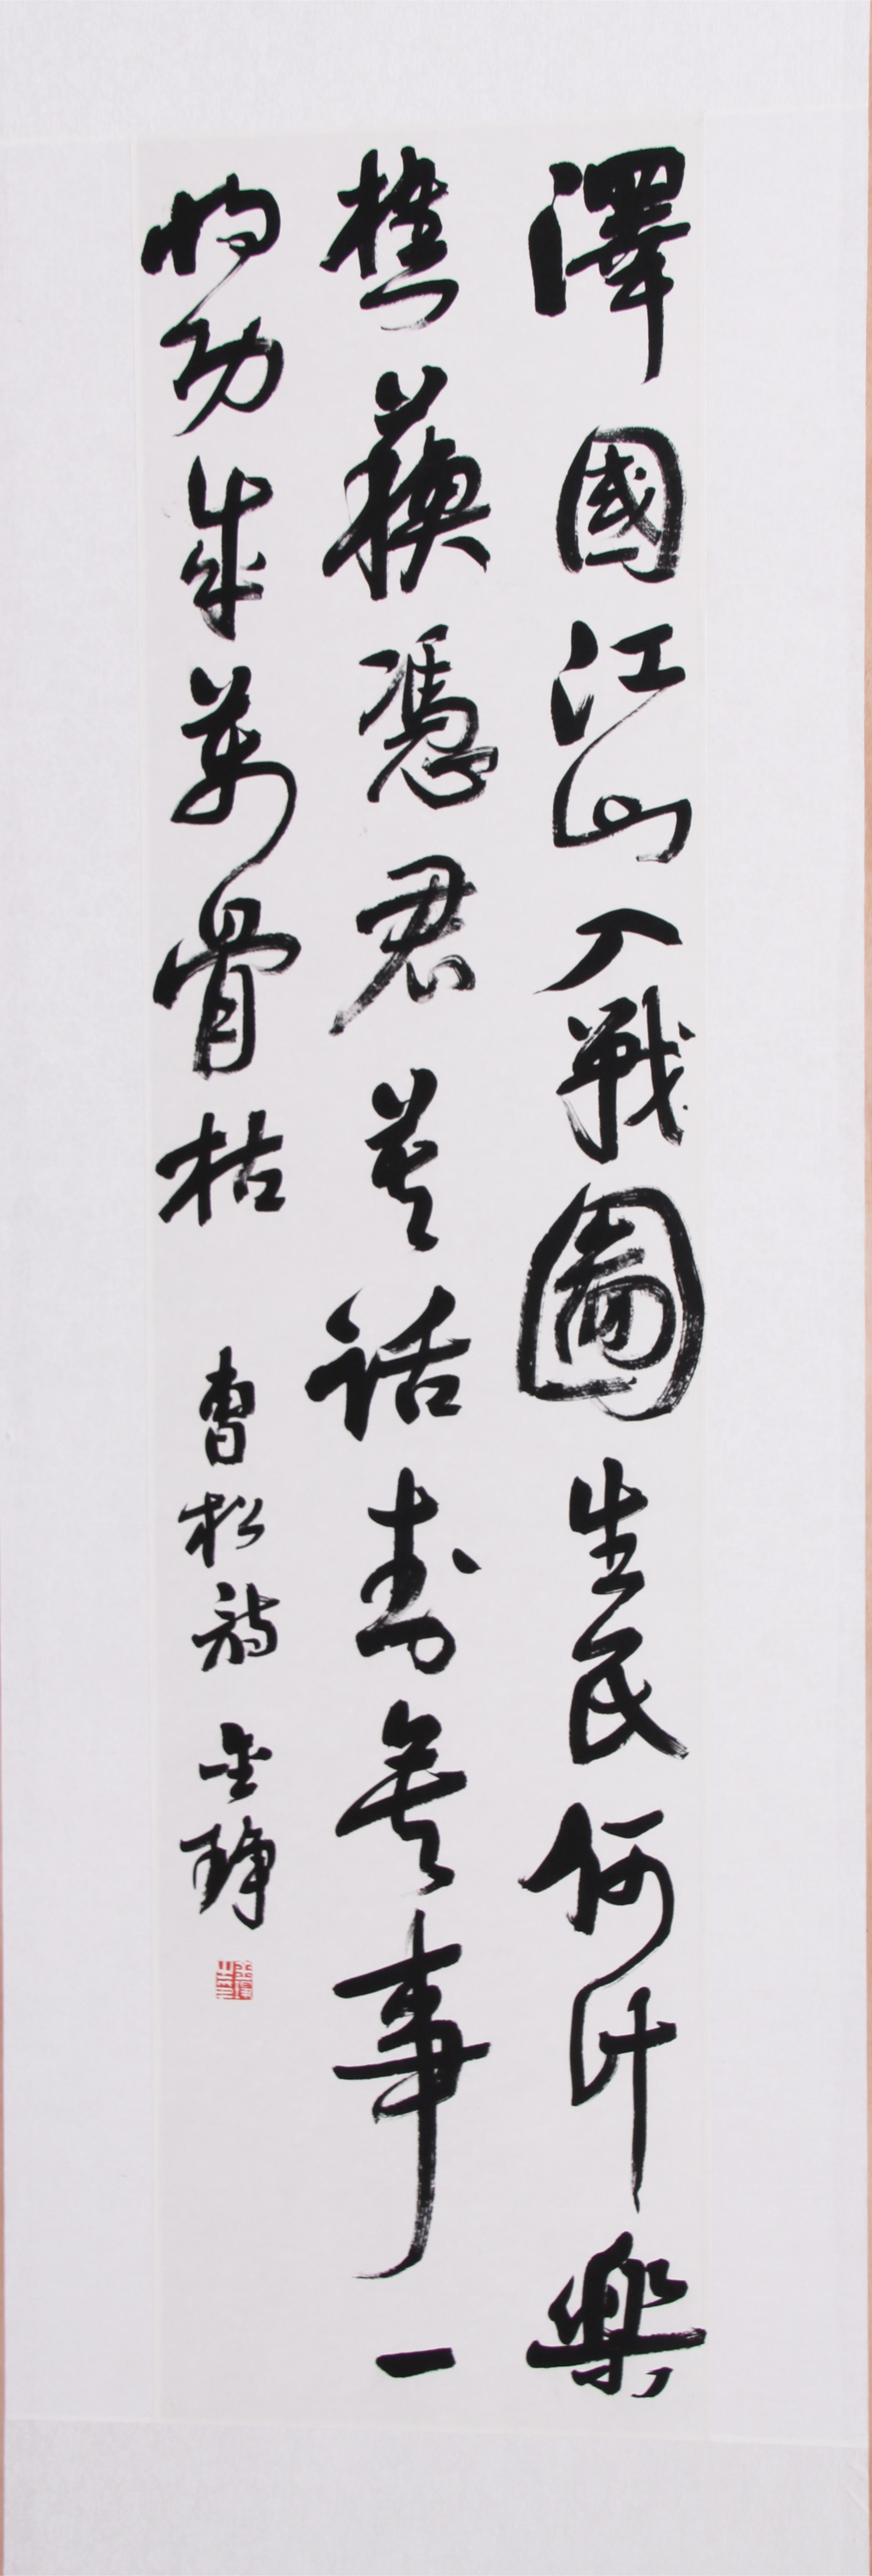 澤國江山入戰圖生民何計樂
樵蘓憑君莫話封侯事一
將功成萬骨枯 曹松詩 金琤